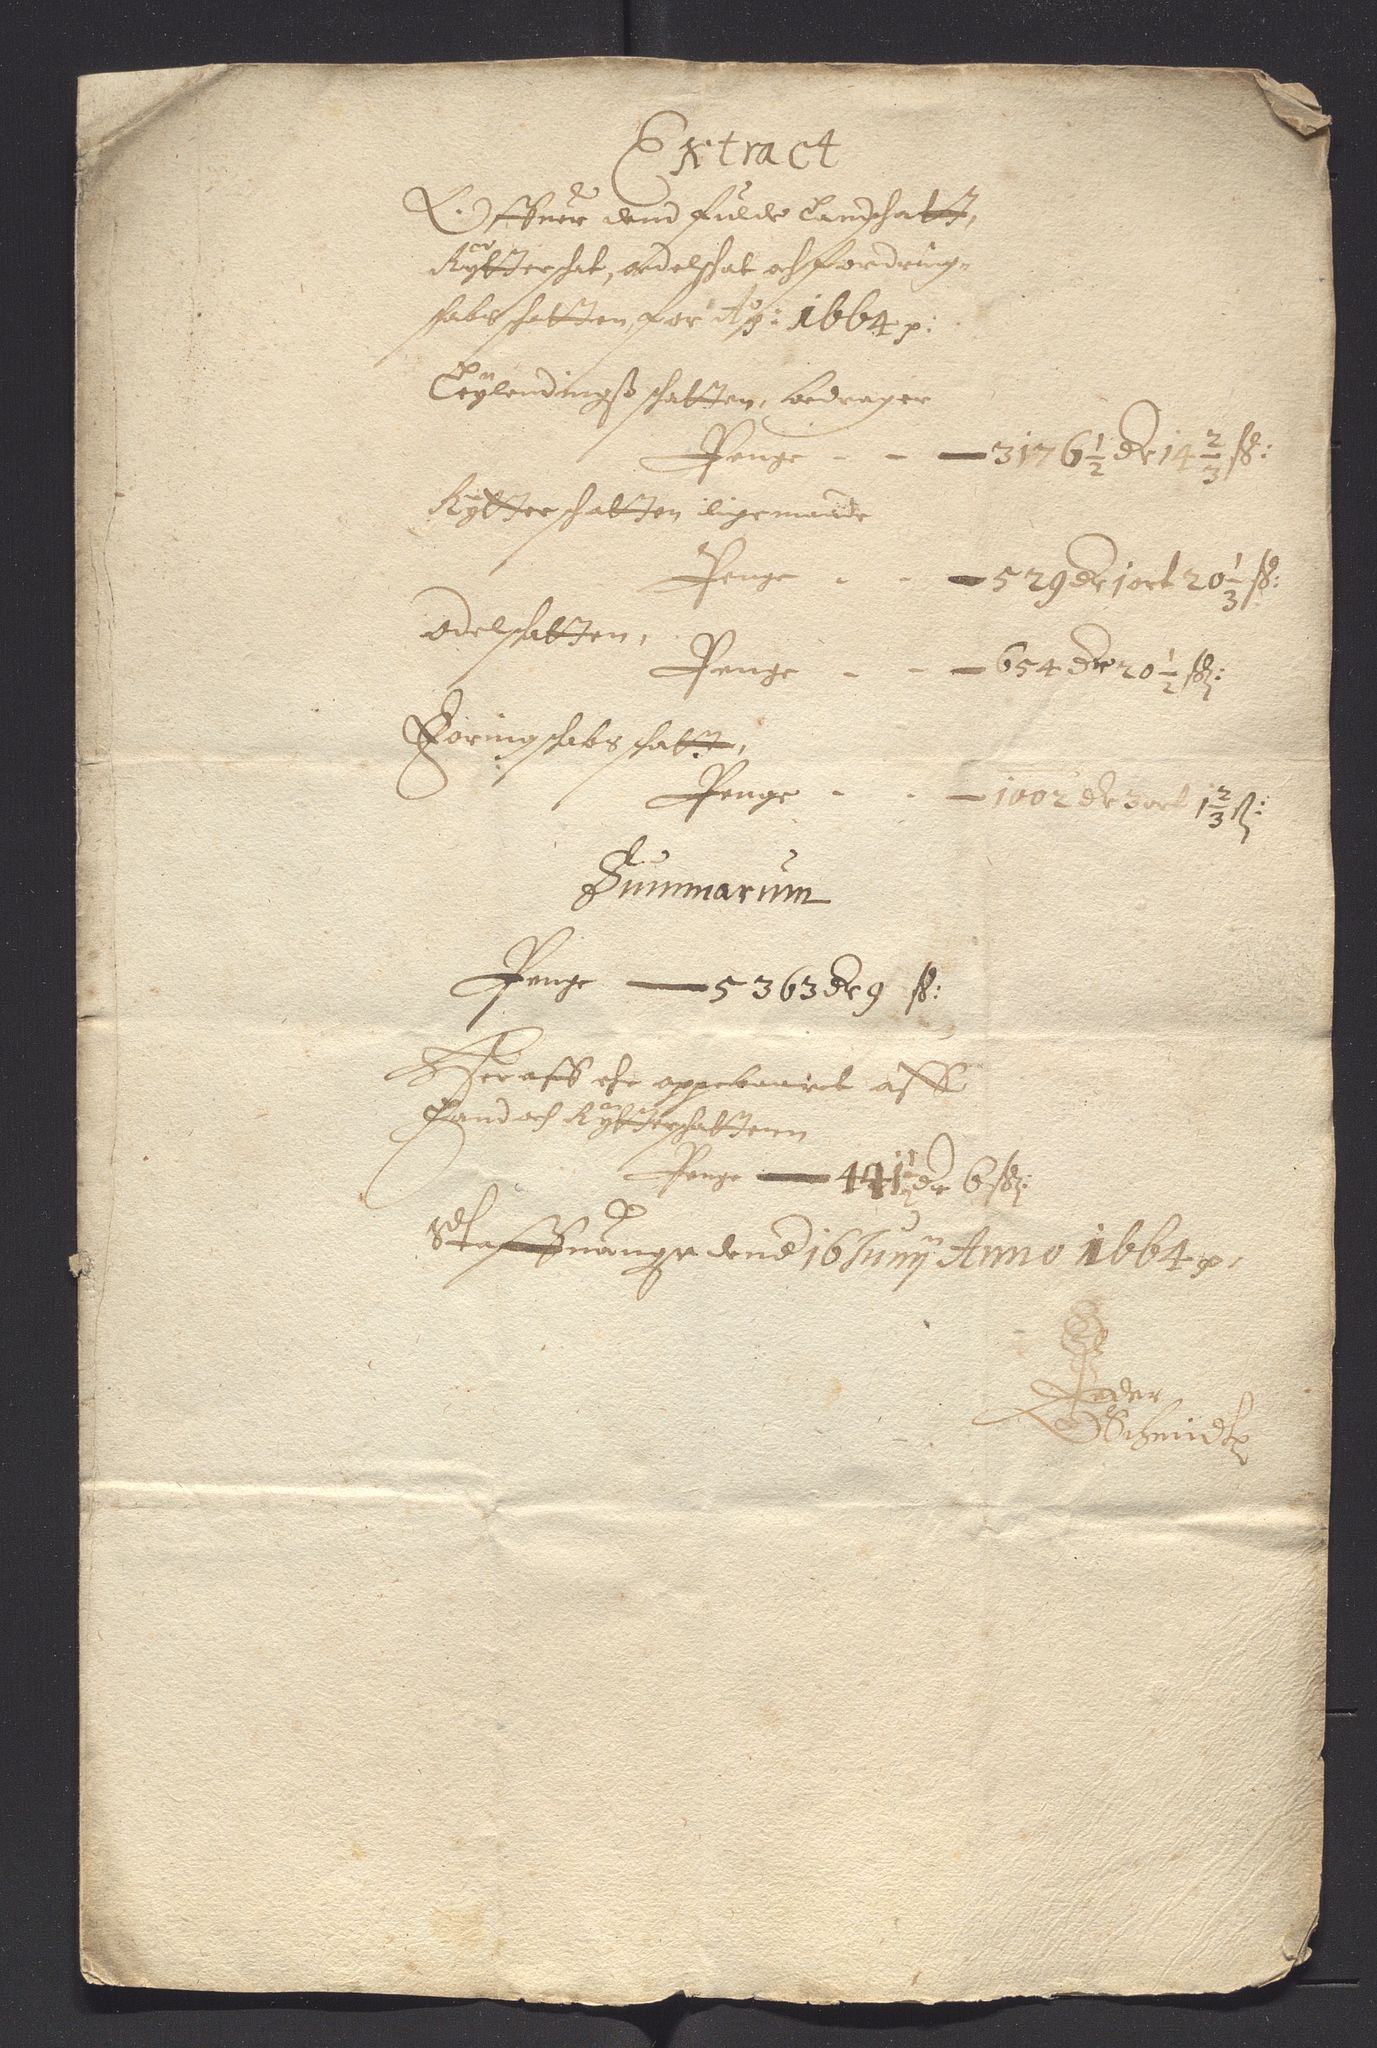 Extract
Offuer dend fulde Landschatt,
Rÿtterschat, odelschat och fordring-
skabs schatten, for Ao: 1664 p:
Leylendingß schatten, bedrager
Penge - - 3176 1/2 dr 14 2/3 sß:
Rÿtterschatten iligemaade
Penge - - 529 dr 1 ort 20 1/3 sß:
odelschatten,
Penge - - 654 dr 20 1/2 sß:
Foringschabs schatt,
Penge - - 1002 dr 3 ort 1 2/3 ß:
Summarum
Penge 5363 dr 9 sß:
Heraff ehr oppebaaret aff
Land och Rÿtterschattenn
Penge 441 1/2 dr 6 sß:
Staffuänge dend 16 Junij Anno 1664 p,
Peder
Schmidt